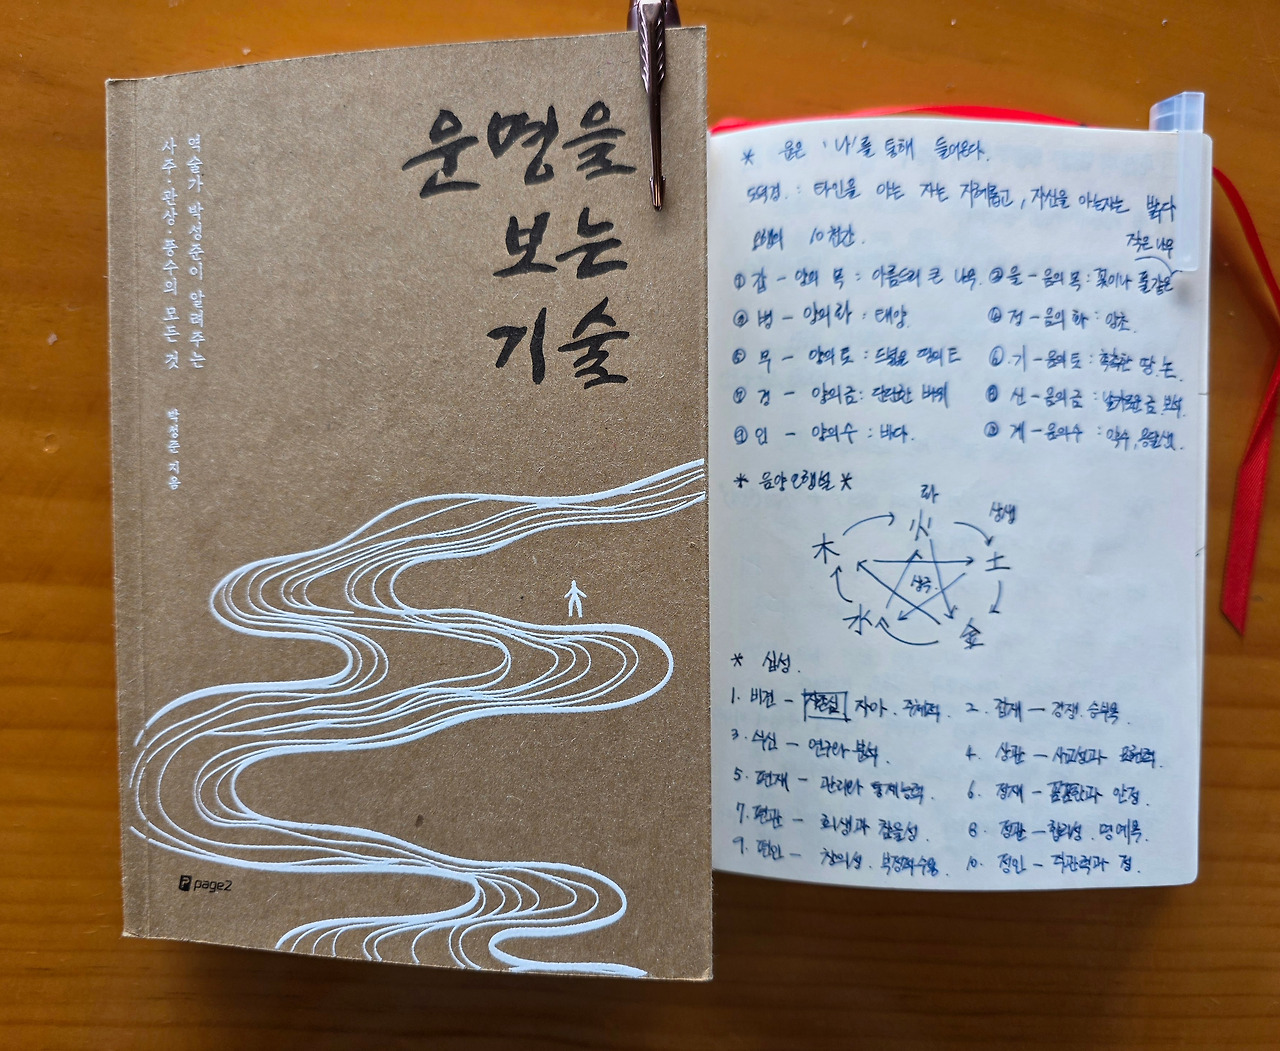 운명을
보는
기술
역술가 박성준이 알려주는
사주·관상·풍수의 모든 것
박성준 지음
page2
* 운은 '나'를 통해 들어온다.
도덕경 : 타인을 아는 자는 지혜롭고, 자신을 아는자는 밝다
오행의 10천간.
작은 나무
① 갑 - 양의 목 : 아름드리 큰 나무. ② 을 - 음의 목 : 꽃이나 풀같은
③ 병 - 양의 화 : 태양. ④ 정 - 음의 화 : 양초.
⑤ 무 - 양의 토 : 드넓은 땅의 토 ⑥ 기 - 음의 토 : 축축한 땅. 논.
⑦ 경 - 양의 금 : 단단한 바위 ⑧ 신 - 음의 금 : 날카로운 금. 보석.
⑨ 임 - 양의 수 : 바다. ⑩ 계 - 음의 수 : 약수, 옹달샘.
* 음양오행설 *
화
火 상생
木 土
상극.
水 金
* 십성.
1. 비견 - 자존심 자아. 주체적. 2. 겁재 - 경쟁 승부욕.
3. 식신 - 연구와 분석. 4. 상관 - 사교성과 표현력.
5. 편재 - 관리와 통제능력. 6. 정재 - 꼼꼼함과 안정.
7. 편관 - 희생과 참을성. 8. 정관 - 합리성. 명예욕.
9. 편인 - 창의성. 부정적수용 10. 정인 - 직관력과 정.